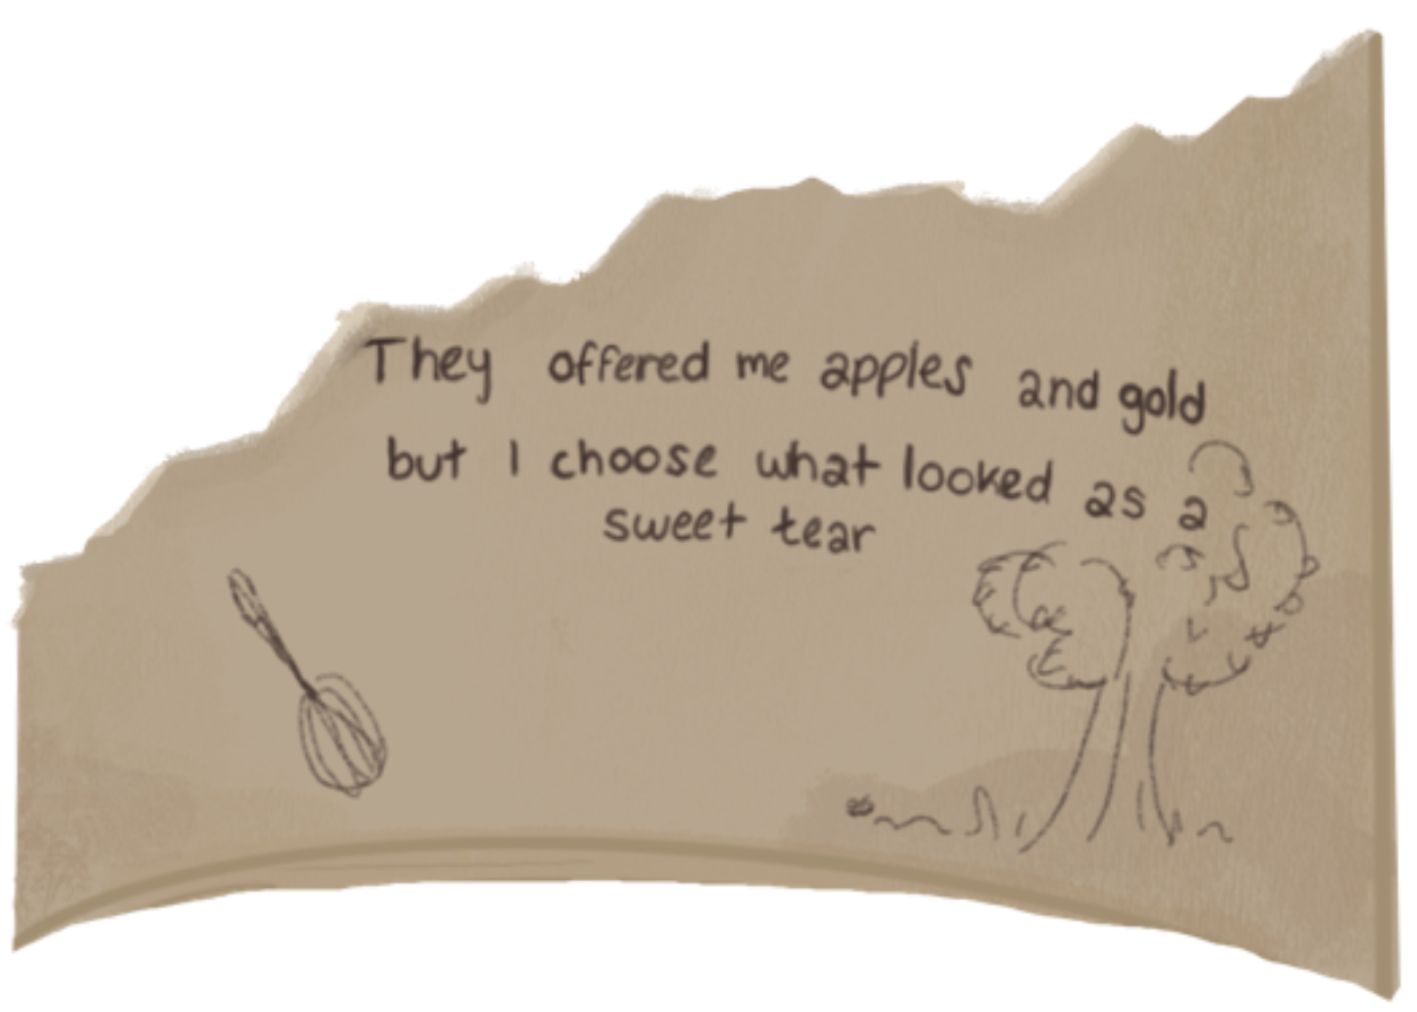 They offered me apples and gold
but I choose what looked as a
sweet tear